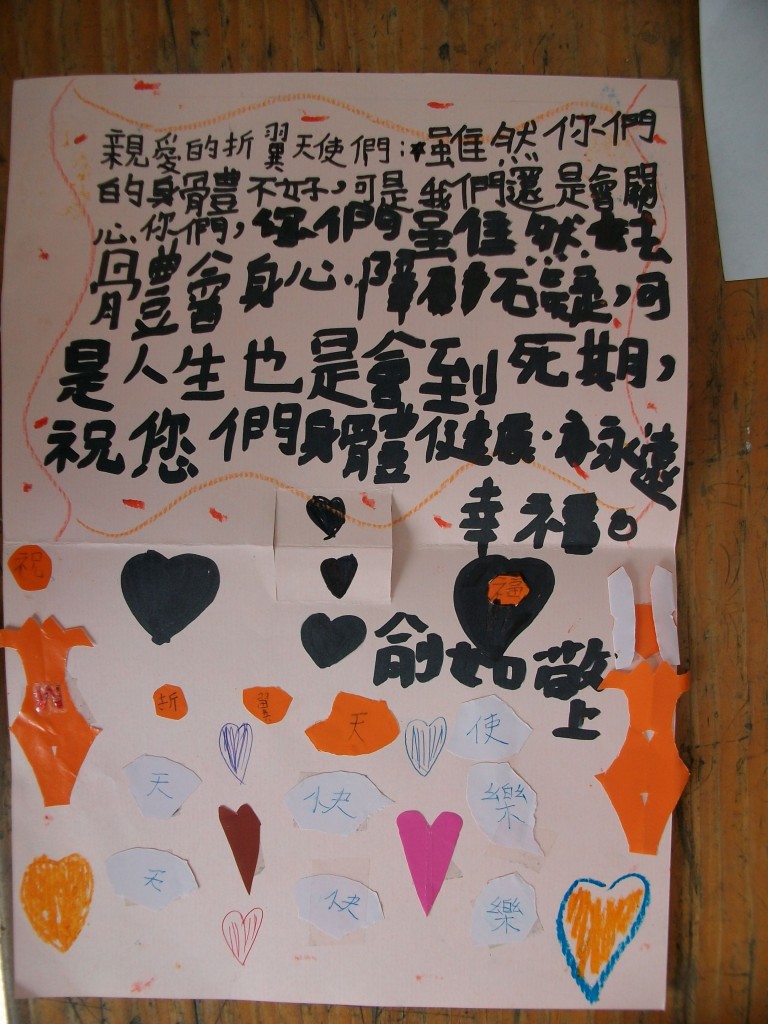 親愛的折翼天使們:雖然你們
的身體不好,可是我們還是會關
心你們,你們雖然
體會身心.障礙,可
是人生也是會到死期,
祝您們身體健康.永遠
幸福。
祝
福
俞如敬
上
折翼天使
天快樂
天快樂